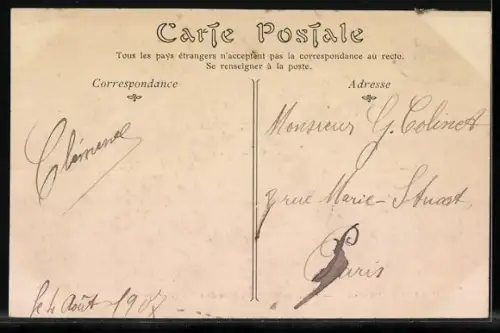 Carte Postale
Tous les pays étrangers n'acceptent pas la correspondance au recto.
Se renseigner à la poste.
Correspondance
Adresse
Clémence
Monsieur G. Colinet
rue Marie-Stuart
Paris
le 4 Août 1907